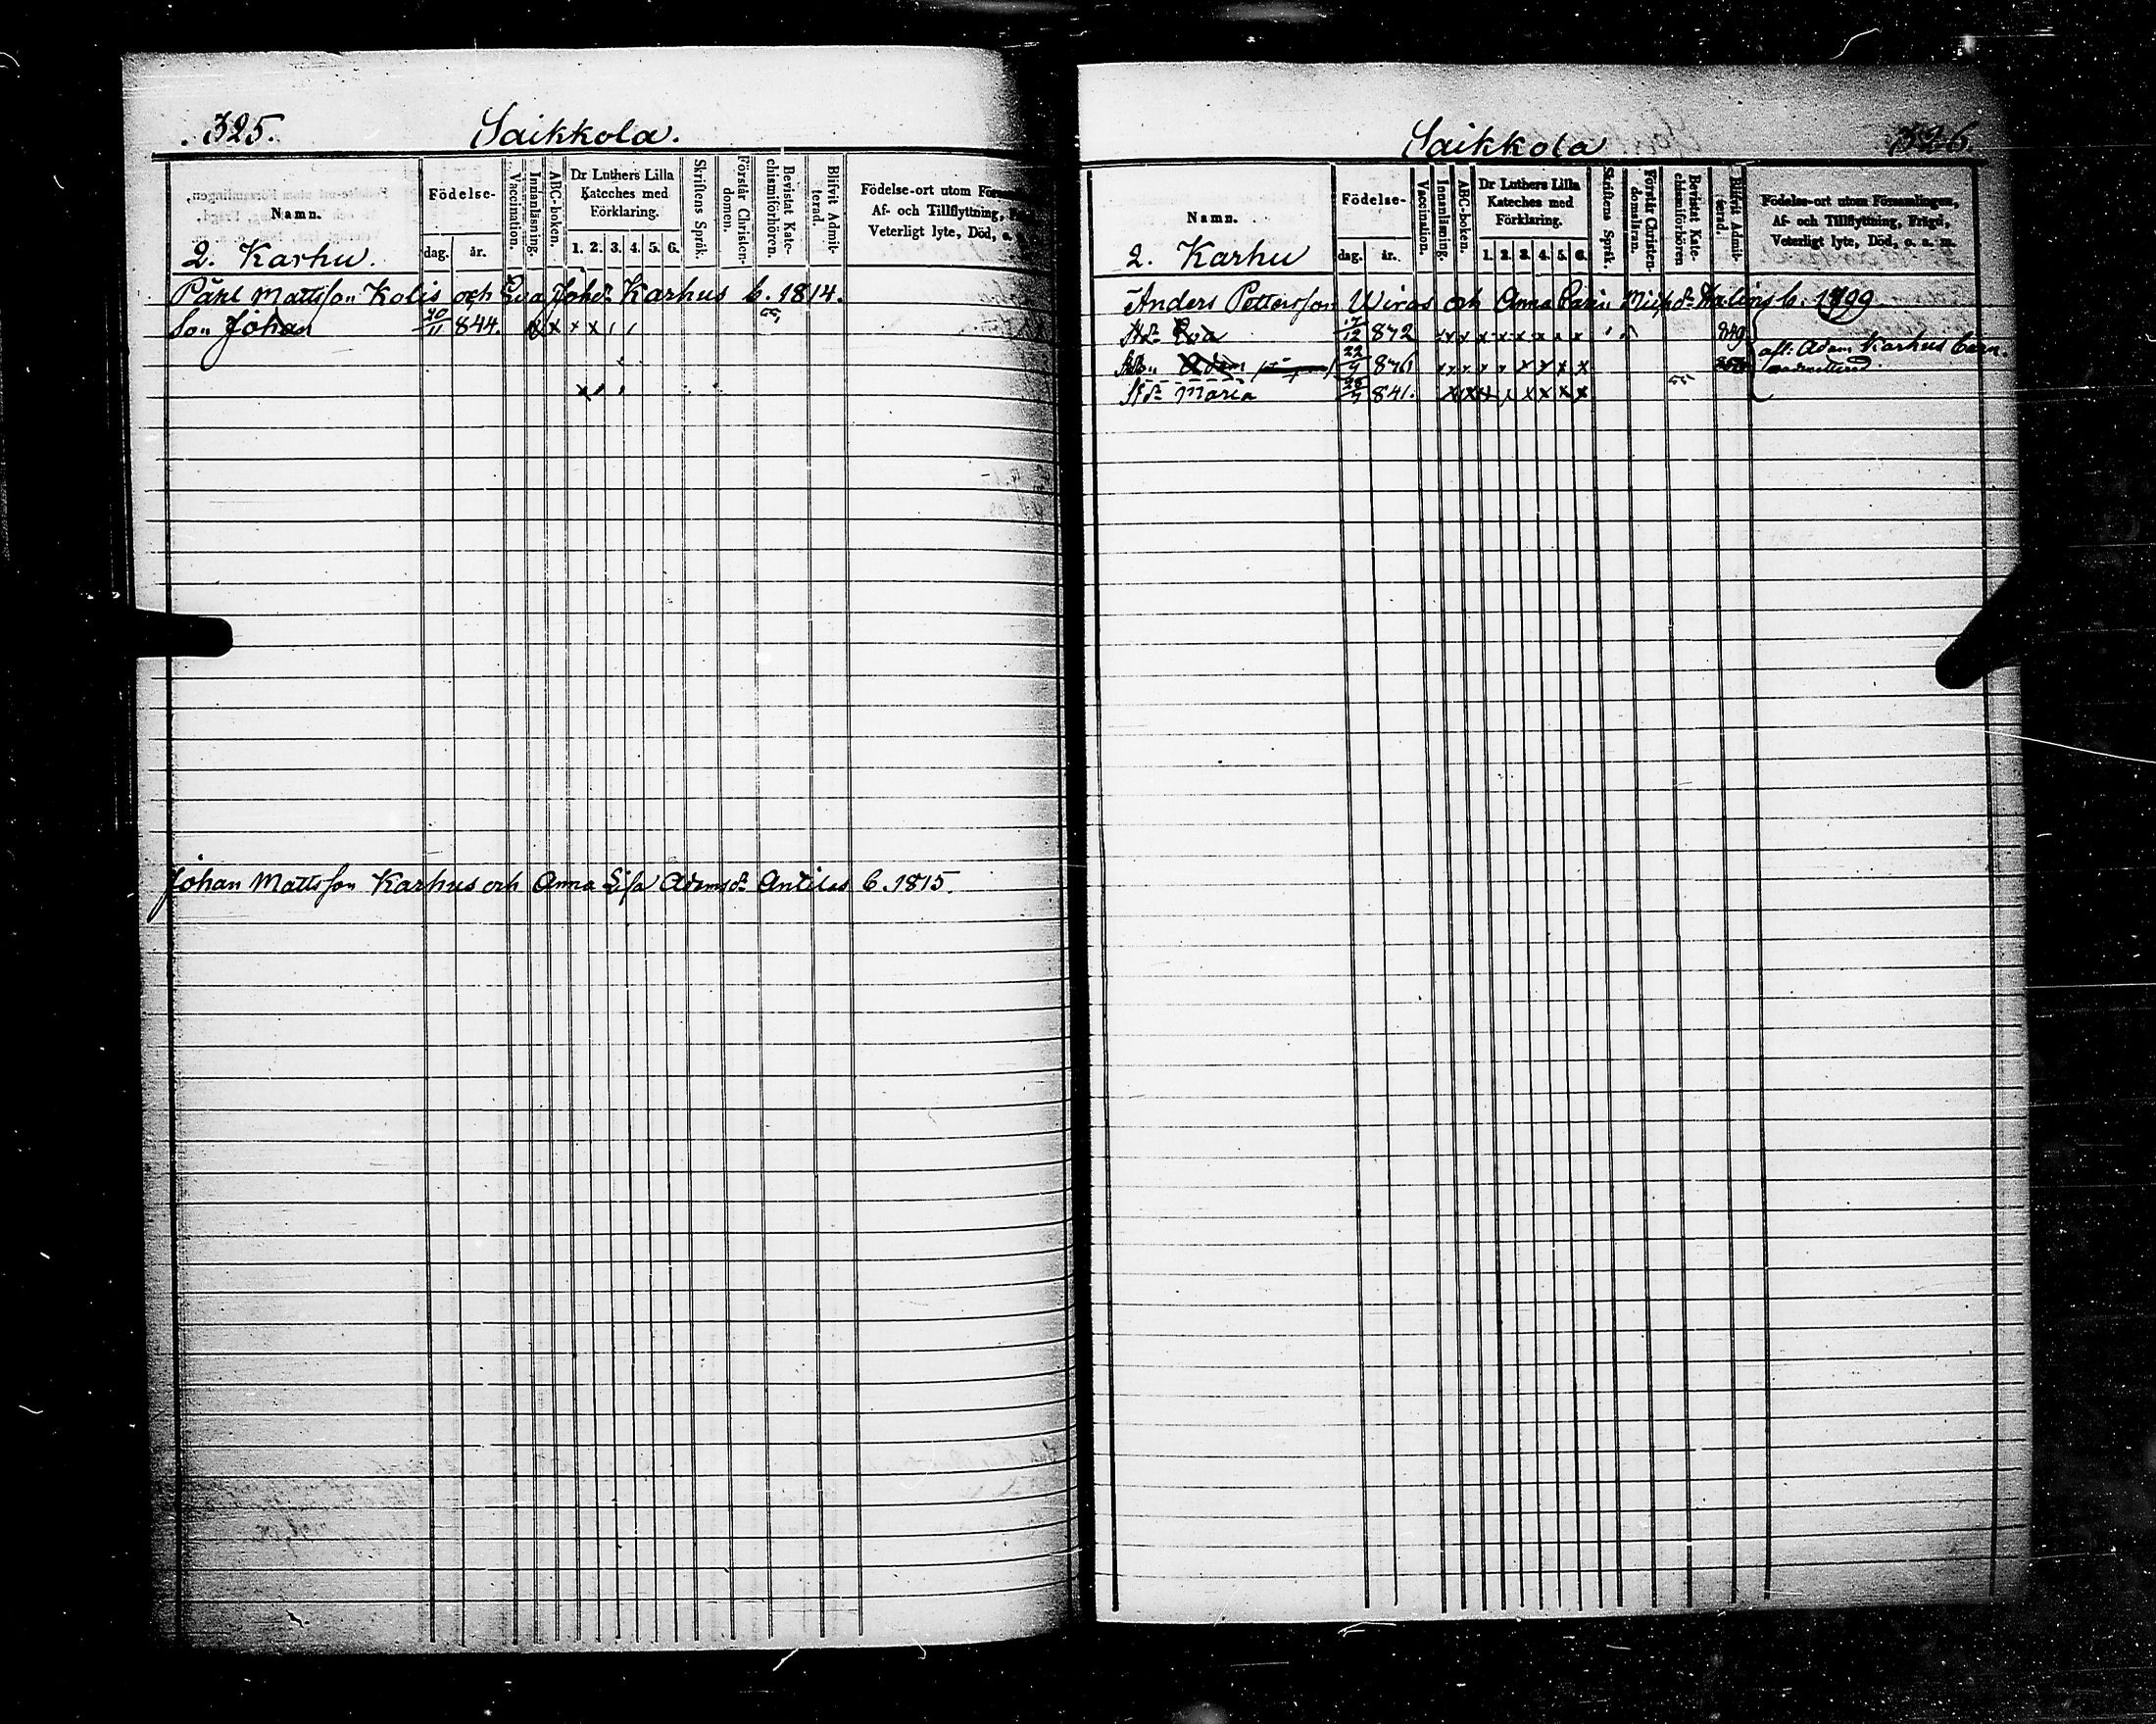 325.
Saikkola.
Namn.
Födelse-
dag. år.
Vaccination.
Innanläsning.
ABC-boken.
Dr Luthers Lilla
Kateches med
Förklaring.
1. 2. 3. 4. 5. 6.
Skriftens Språk.
Förstår Christen-
domen.
Bevistat Kate-
chismiförhören.
Blifvit Admit-
terad.
Födelse-ort utom
Af- och Tillflyttning,
Veterligt lyte, Död, o. a.
2. Karhu.
Påhl Mattsson Kolis och Eva Johdr Karhus b. 1814.
Son Johan 20/11 844. x x x x
Johan Mattsson Karhus och Anna Lisa Adamsdr Antilas b. 1815.
Saikkola
326.
Namn.
Födelse-
dag. år.
Vaccination.
Innanläsning.
ABC-boken.
Dr Luthers Lilla
Kateches med
Förklaring.
1. 2. 3. 4. 5. 6.
Skriftens Språk.
Förstår Christen-
domsläran.
Bevistat Kate-
chismiförhören
Blifvit Admit-
terad.
Födelse-ort utom Församlingen,
Af- och Tillflyttning, Frägd,
Veterligt lyte, Död, o. a. m.
2. Karhu
Anders Pettersson Wiras och Anna Carin b. 1799
Eva 12 849
Adam 22
aft: Adam Karhus barn
dr Maria 841.